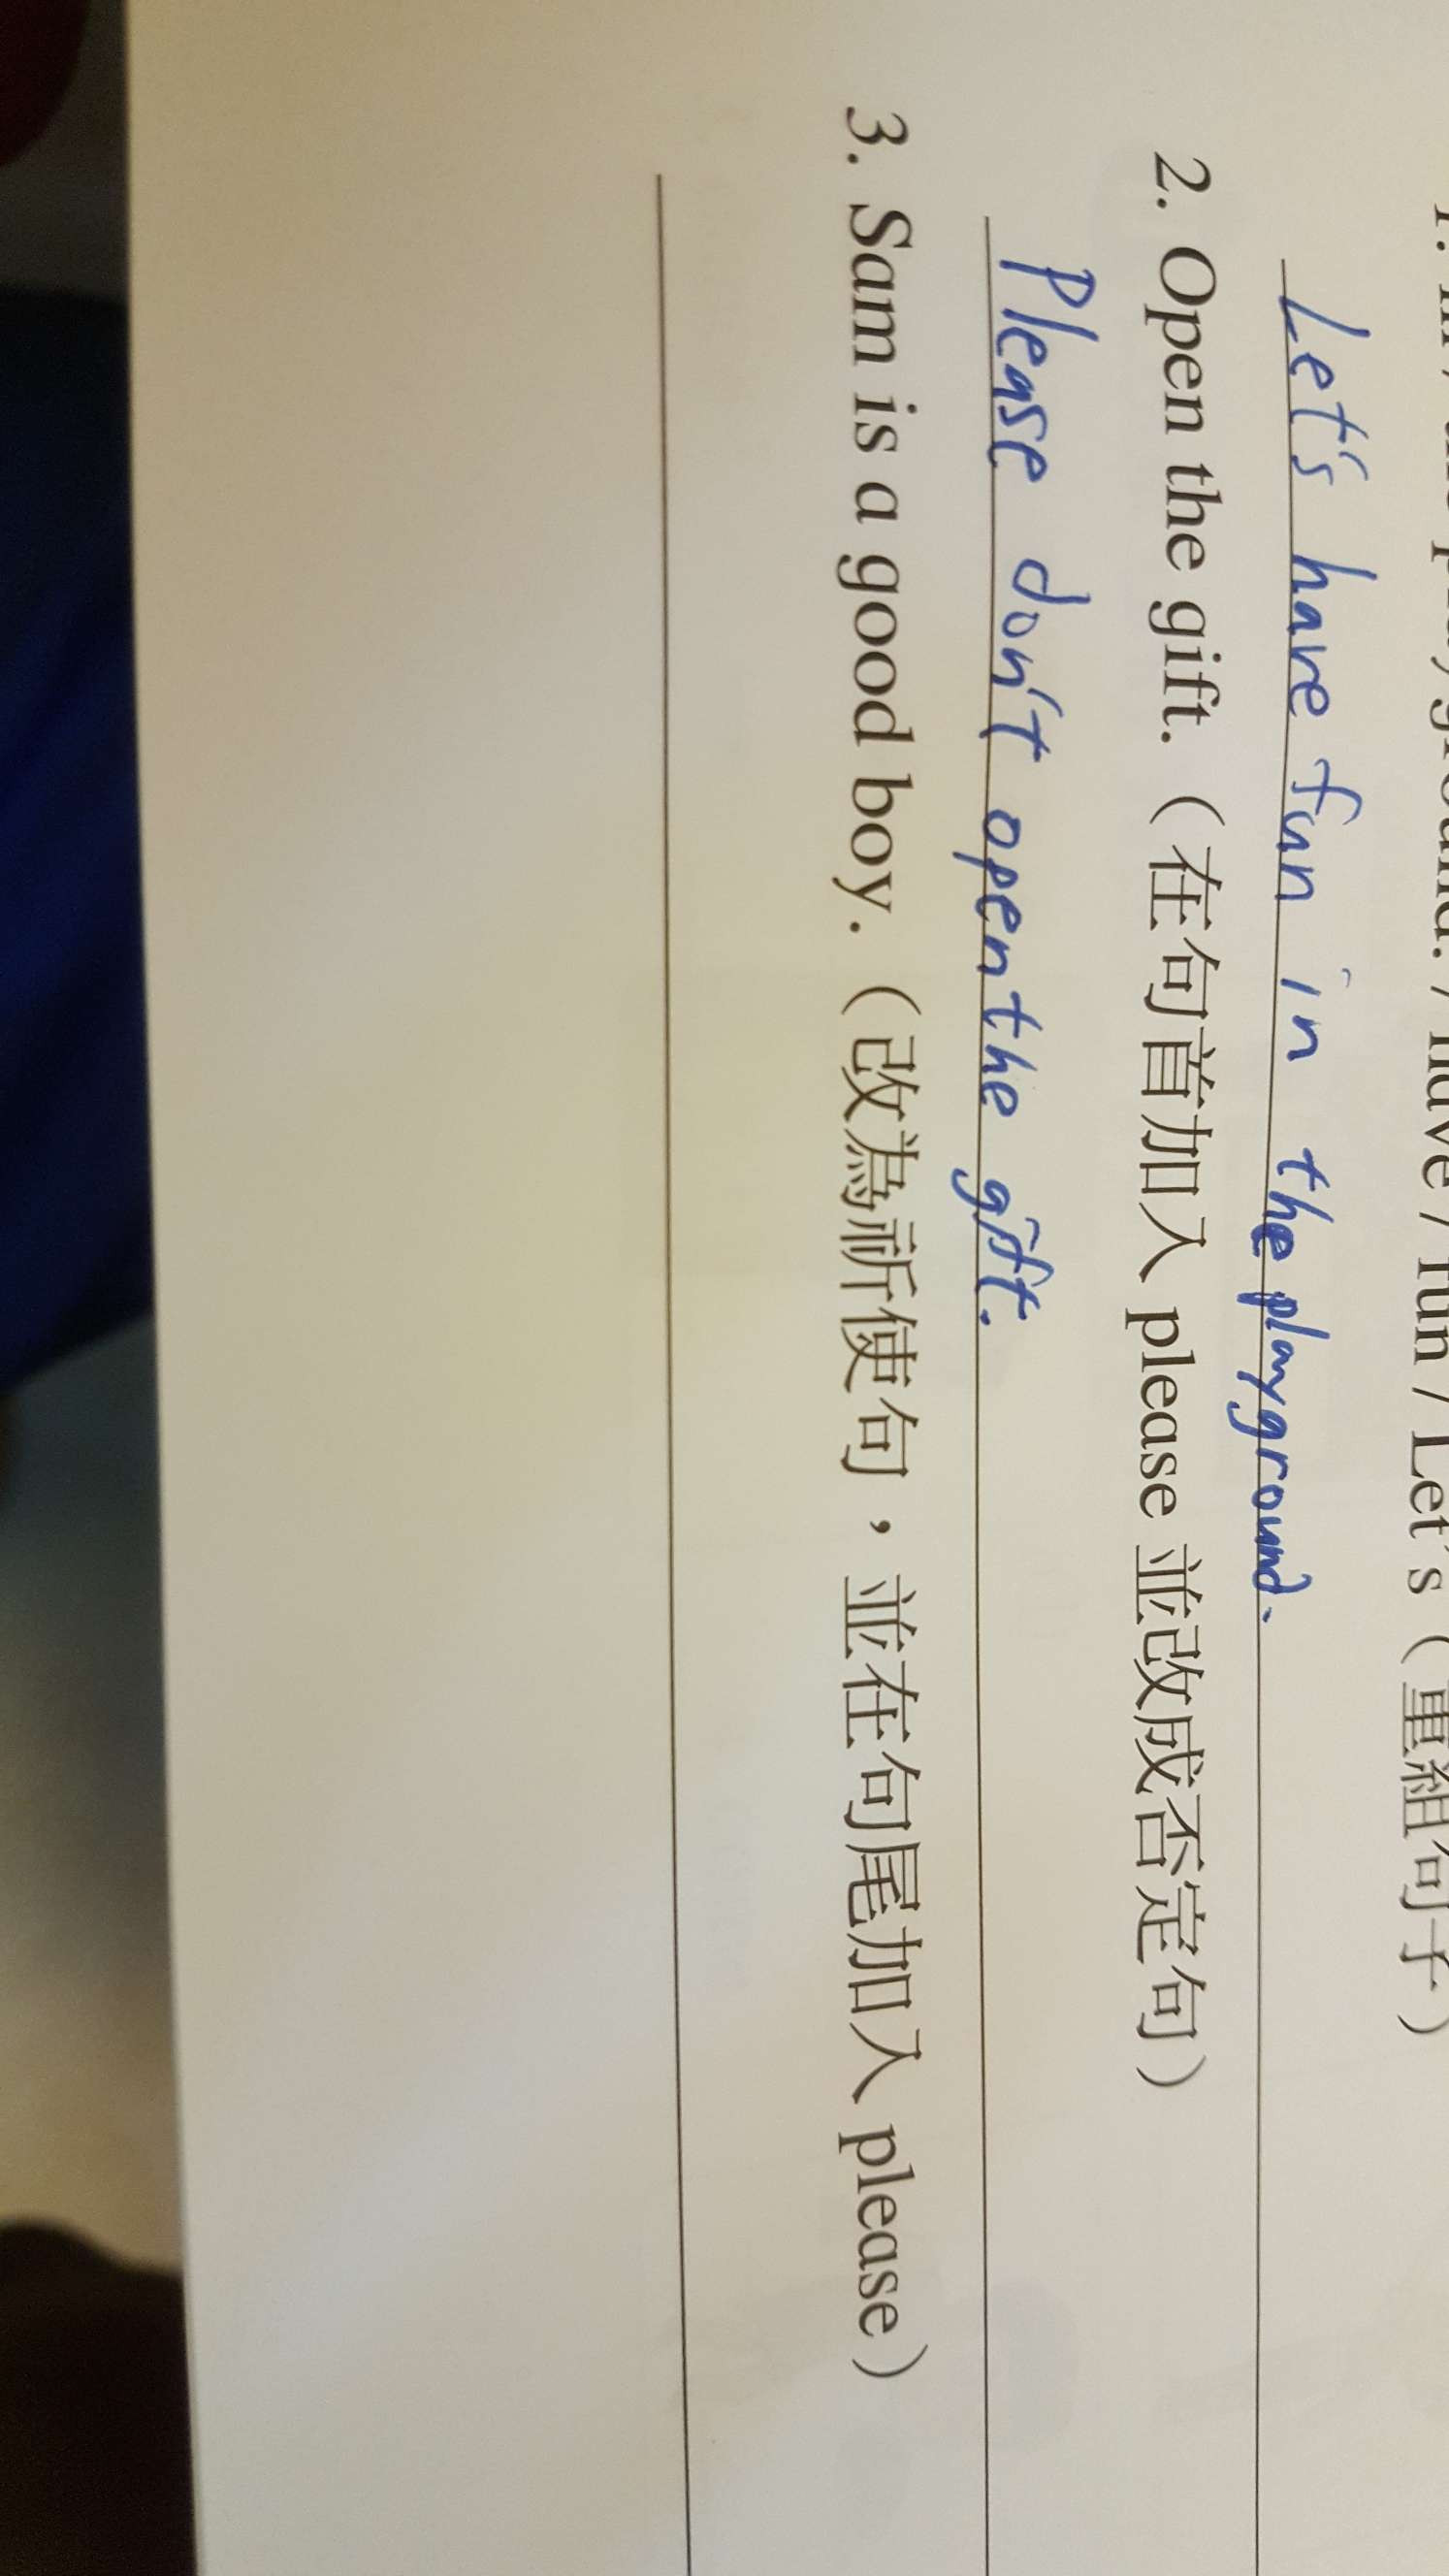 1. In / the playground. / have / fun / Let's（重組句子）
Let's have fun in the playground.
2. Open the gift.（在句首加入 please 並改成否定句）
Please don't open the gift.
3. Sam is a good boy.（改為祈使句，並在句尾加入 please）